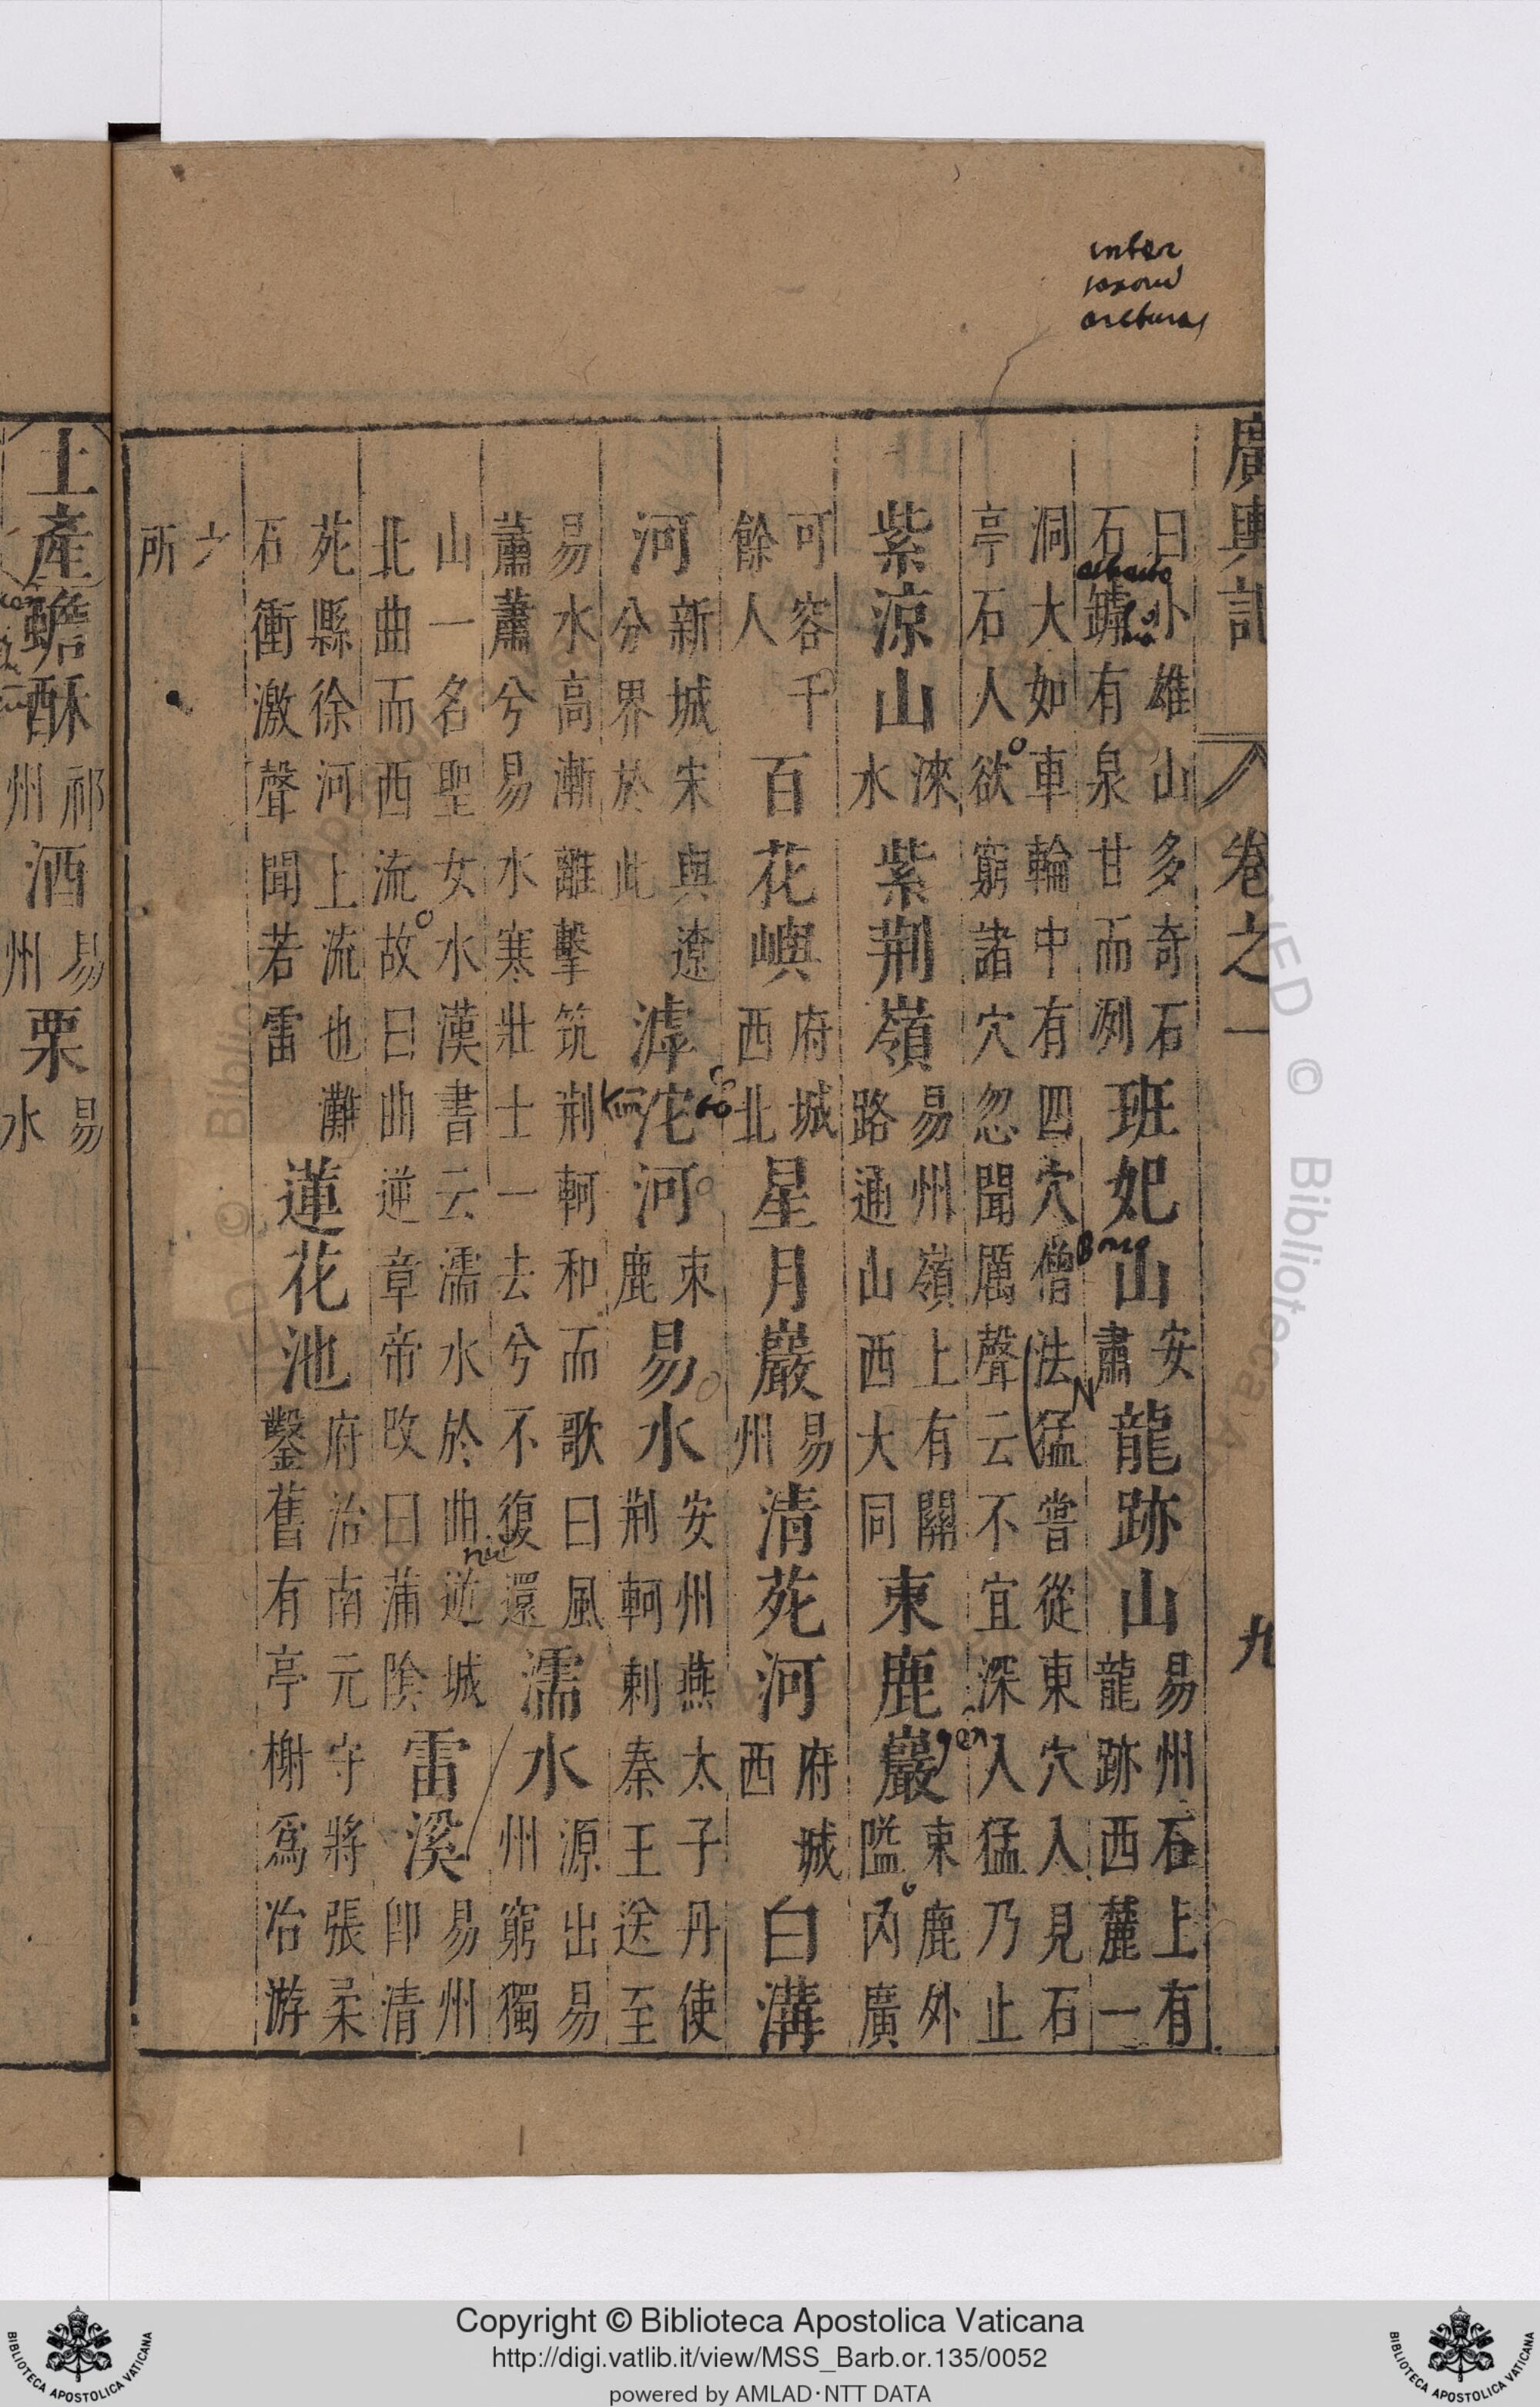 inter
廣輿記 卷之一 九
日小雄山多奇石石罅有泉甘而冽班妃山安肅龍跡山易州石上有龍跡西麓一
洞大如車輪中有四穴僧法猛嘗從東穴入見石亭石人欲窮諸穴忽聞厲聲云不宜深入猛乃止
紫涼山淶水紫荆嶺易州嶺上有關路通山西大同束鹿巖束鹿外隘內廣
可容千餘人百花嶼府城西北星月巖易州清苑河府城西白溝
河新城宋與遼分界於此滹沱河束鹿易水安州燕太子丹使荆軻刺秦王送至
易水高漸離擊筑荆軻和而歌曰風蕭蕭兮易水寒壯士一去兮不復還濡水源出易州窮獨
山一名聖女水漢書云濡水於曲逆城北曲而西流故曰曲逆章帝改曰蒲陰雷溪易州卽清
苑縣徐河上流也灘石衝激聲聞若雷蓮花池府治南元守將張柔鑿舊有亭榭爲冶游
所
土產蟾酥祁州酒易州栗易水
Copyright © Biblioteca Apostolica Vaticana
http://digi.vatlib.it/view/MSS_Barb.or.135/0052
powered by AMLAD·NTT DATA
BIBLIOTECA APOSTOLICA VATICANA
BIBLIOTECA APOSTOLICA VATICANA